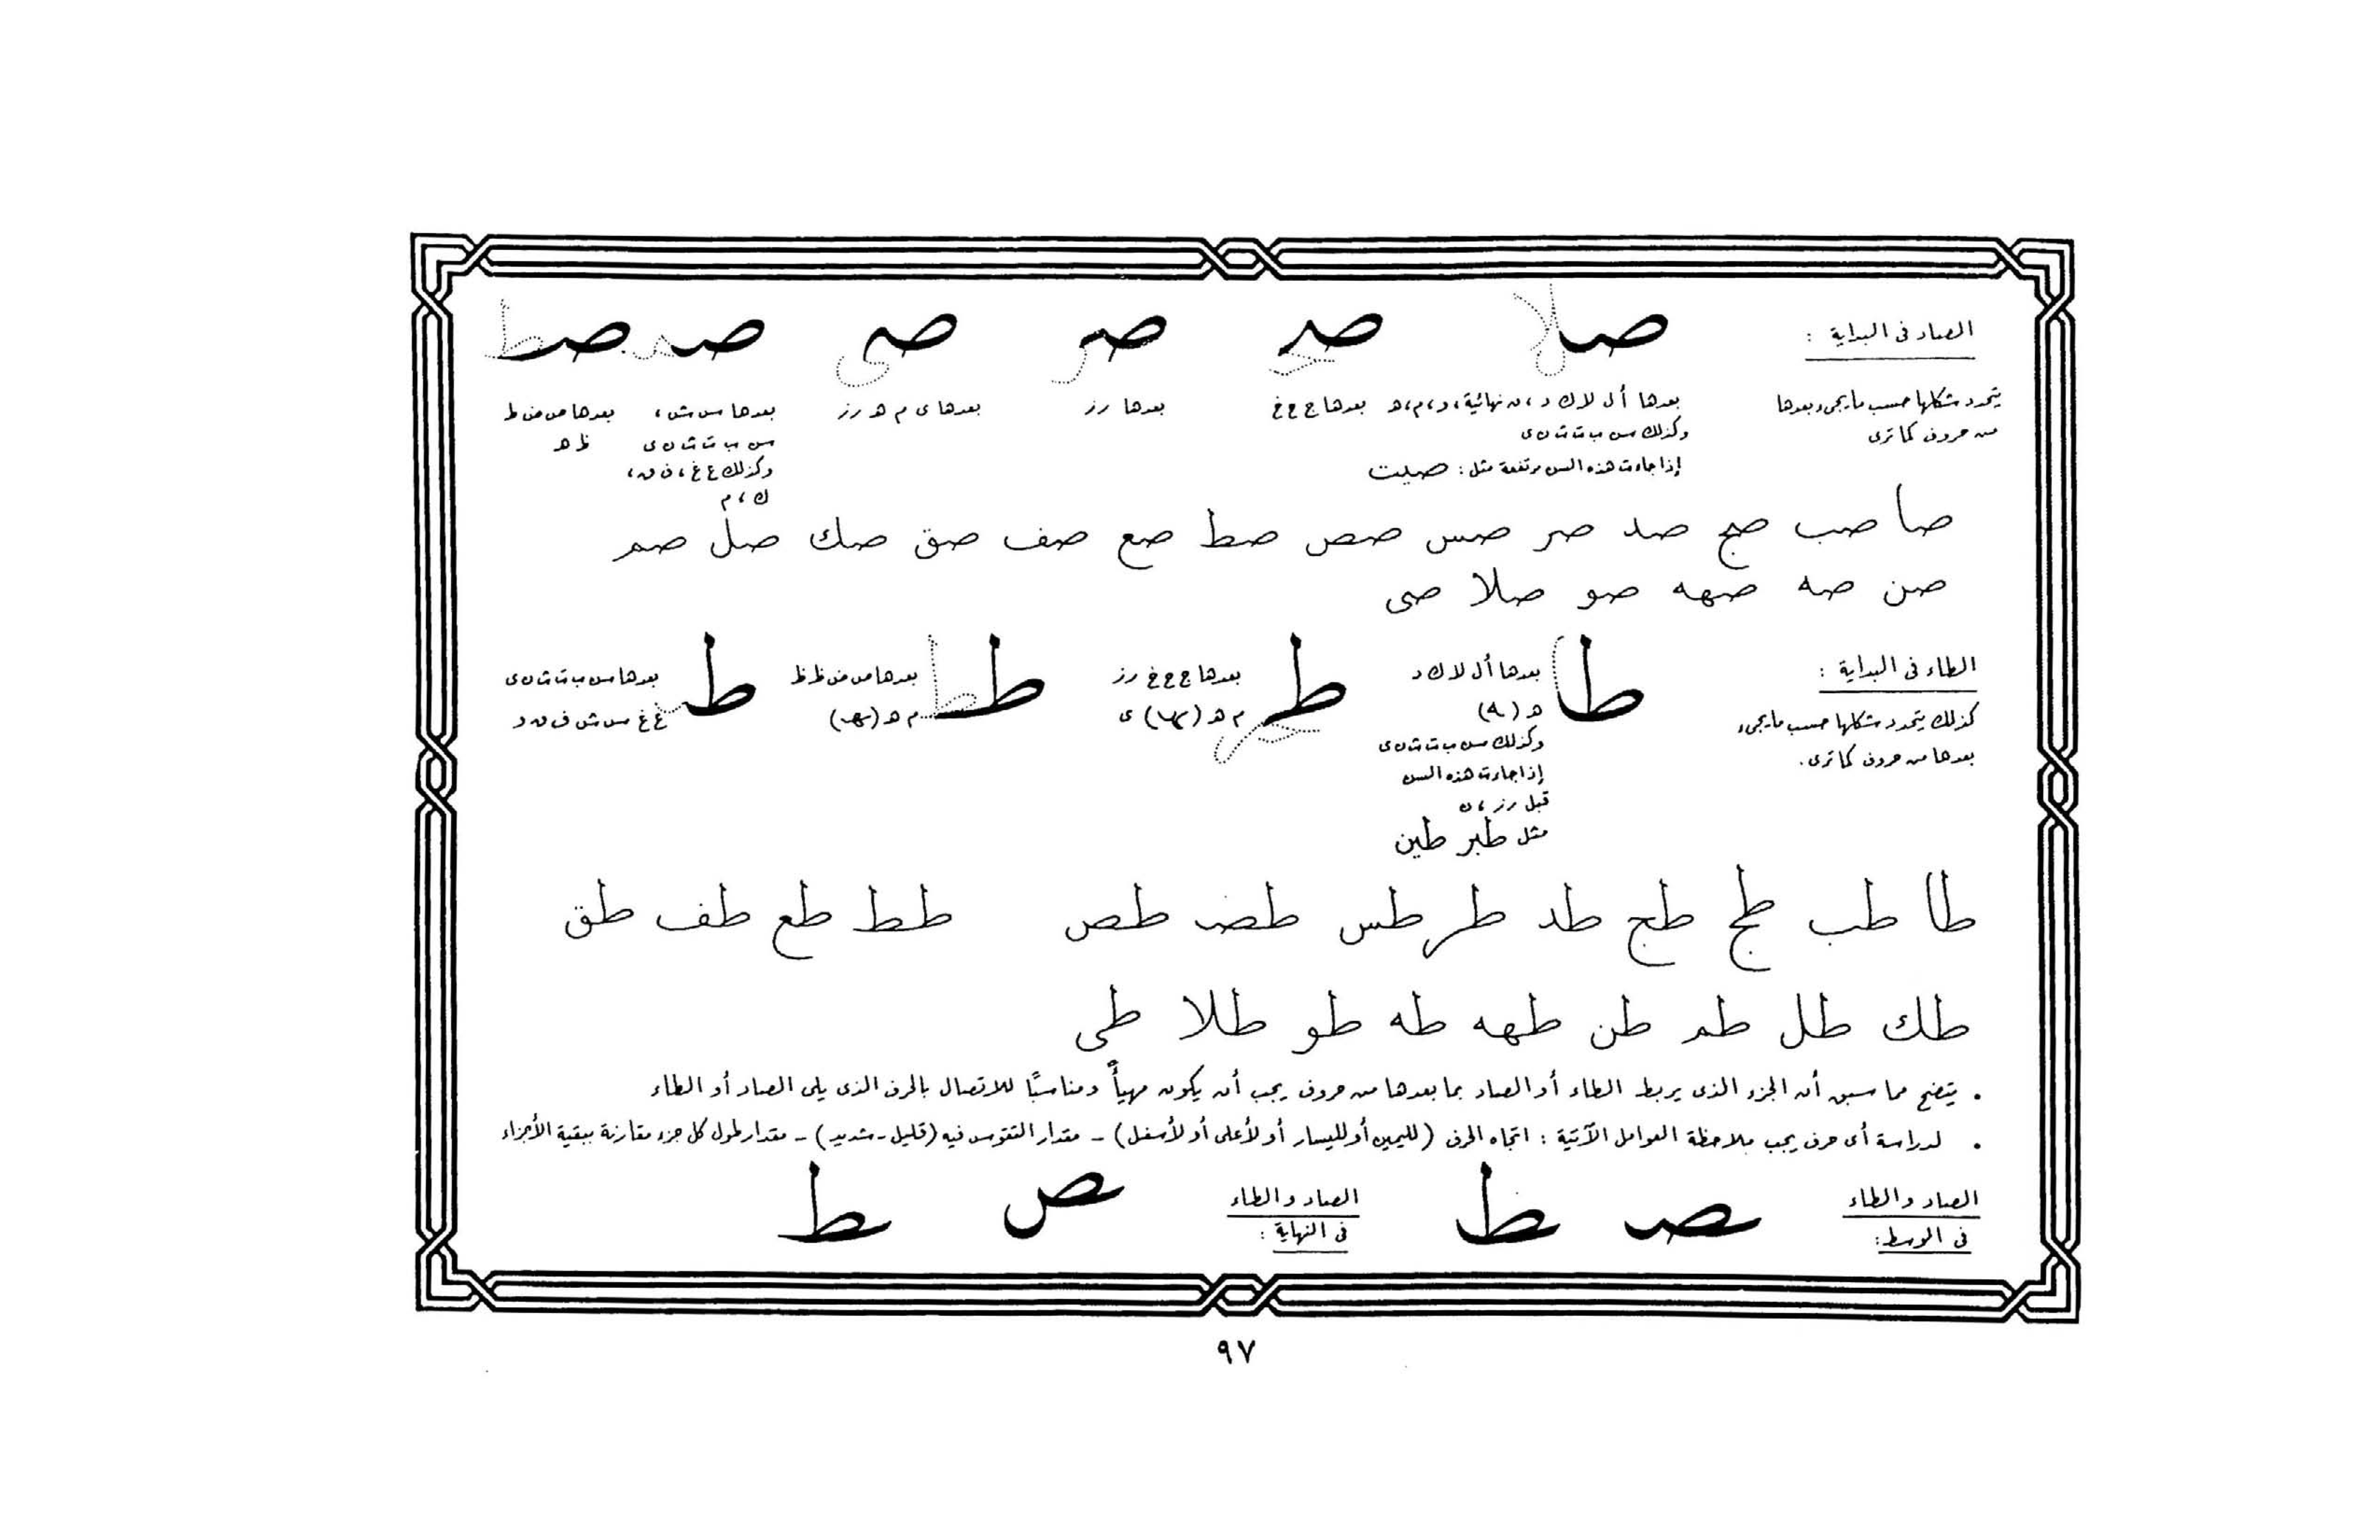 الصاد فى البداية :
يتحدد شكلها حسب ما يجىء بعدها
من حروف كما ترى
صلا صح صر صى صس صط
بعدها أ ل لا ك د ، ن نهائية ، و ، م ، ه
وكذلك سن ب ت ث ن ى
إذا جاءت هذه السن مرتفعة مثل : صبلبت
بعدها ج ح خ
بعدها ر ز
بعدها ى م ه ر ز
بعدها س ش ،
سن ب ت ث ن ى
وكذلك ع غ ، ف ق ،
ك ، م
بعدها ص ض ط
ظ ه
صا صب صج صد صر صس صص صط صع صف صق صك صل صم
صن صه صهه صو صلا صى
الطاء فى البداية :
كذلك يتحدد شكلها حسب ما يجىء
بعدها من حروف كما ترى .
طا
بعدها أ ل لا ك د
ه ( ـه )
وكذلك سن ب ت ث ن ى
إذا جاءت هذه السن
قبل ر ز ، ن
مثل طبر طين
ط
بعدها ج ح خ ر ز
م ه ( ) ى
ط
بعدها ص ض ط ظ
م ه ( )
ط
بعدها سن ب ت ث ن ى
ع غ س ش ف ق و
طا طب طج طج طد طر طس طصـ طص طط طع طف طق
طك طل طم طن طهه طه طو طلا طى
• يتضح مما سبق أن الجزء الذى يربط الطاء أو الصاد بما بعدها من حروف يجب أن يكون مهيأً ومناسبًا للاتصال بالحرف الذى يلى الصاد أو الطاء
• لدراسة أى حرف يجب ملاحظة العوامل الآتية : اتجاه الحرف (لليمين أو لليسار أو لأعلى أو لأسفل) - مقدار التقوس فيه (قليل - شديد) - مقدار طول كل جزء مقارنة ببقية الأجزاء
الصاد والطاء
فى الوسط :
ـصـ ـطـ
الصاد والطاء
فى النهاية :
ـص ـط
٩٧